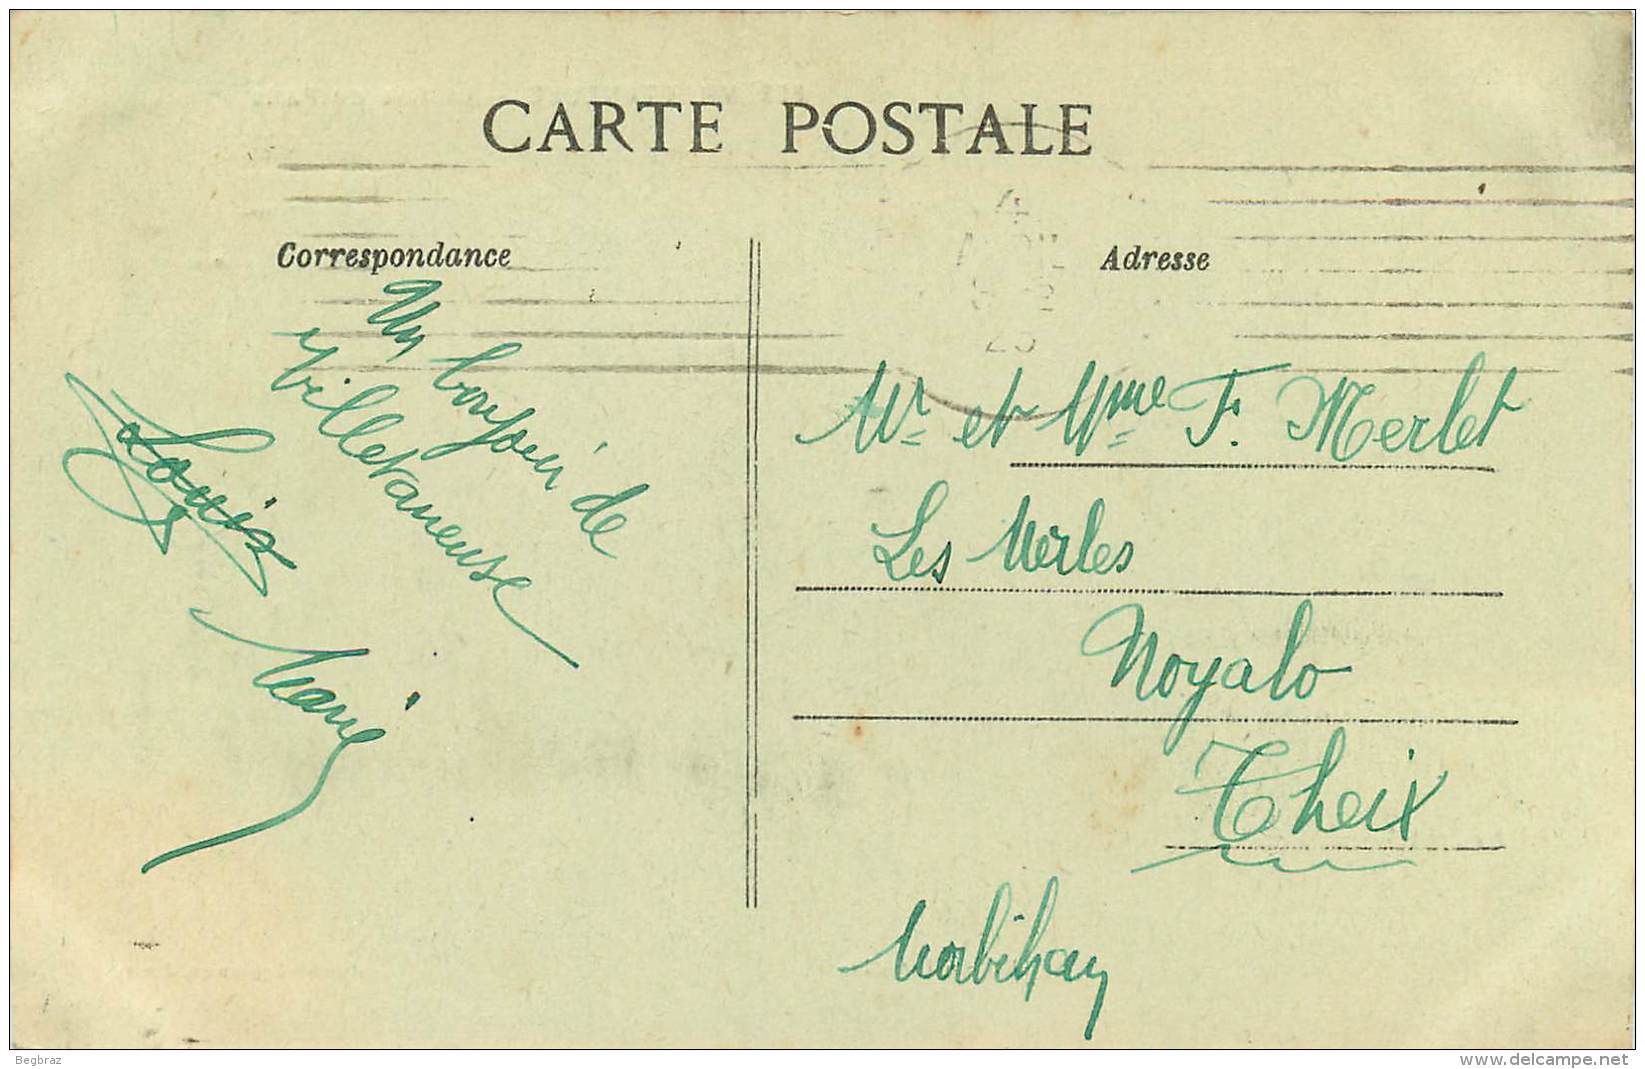 CARTE POSTALE
Correspondance
Adresse
Un bonjour de
Villetaneuse
Louis
Marie
Mr et Mme F. Merlet
Les Merles
Noyalo
Theix
Morbihan
Begbraz
www.delcampe.net